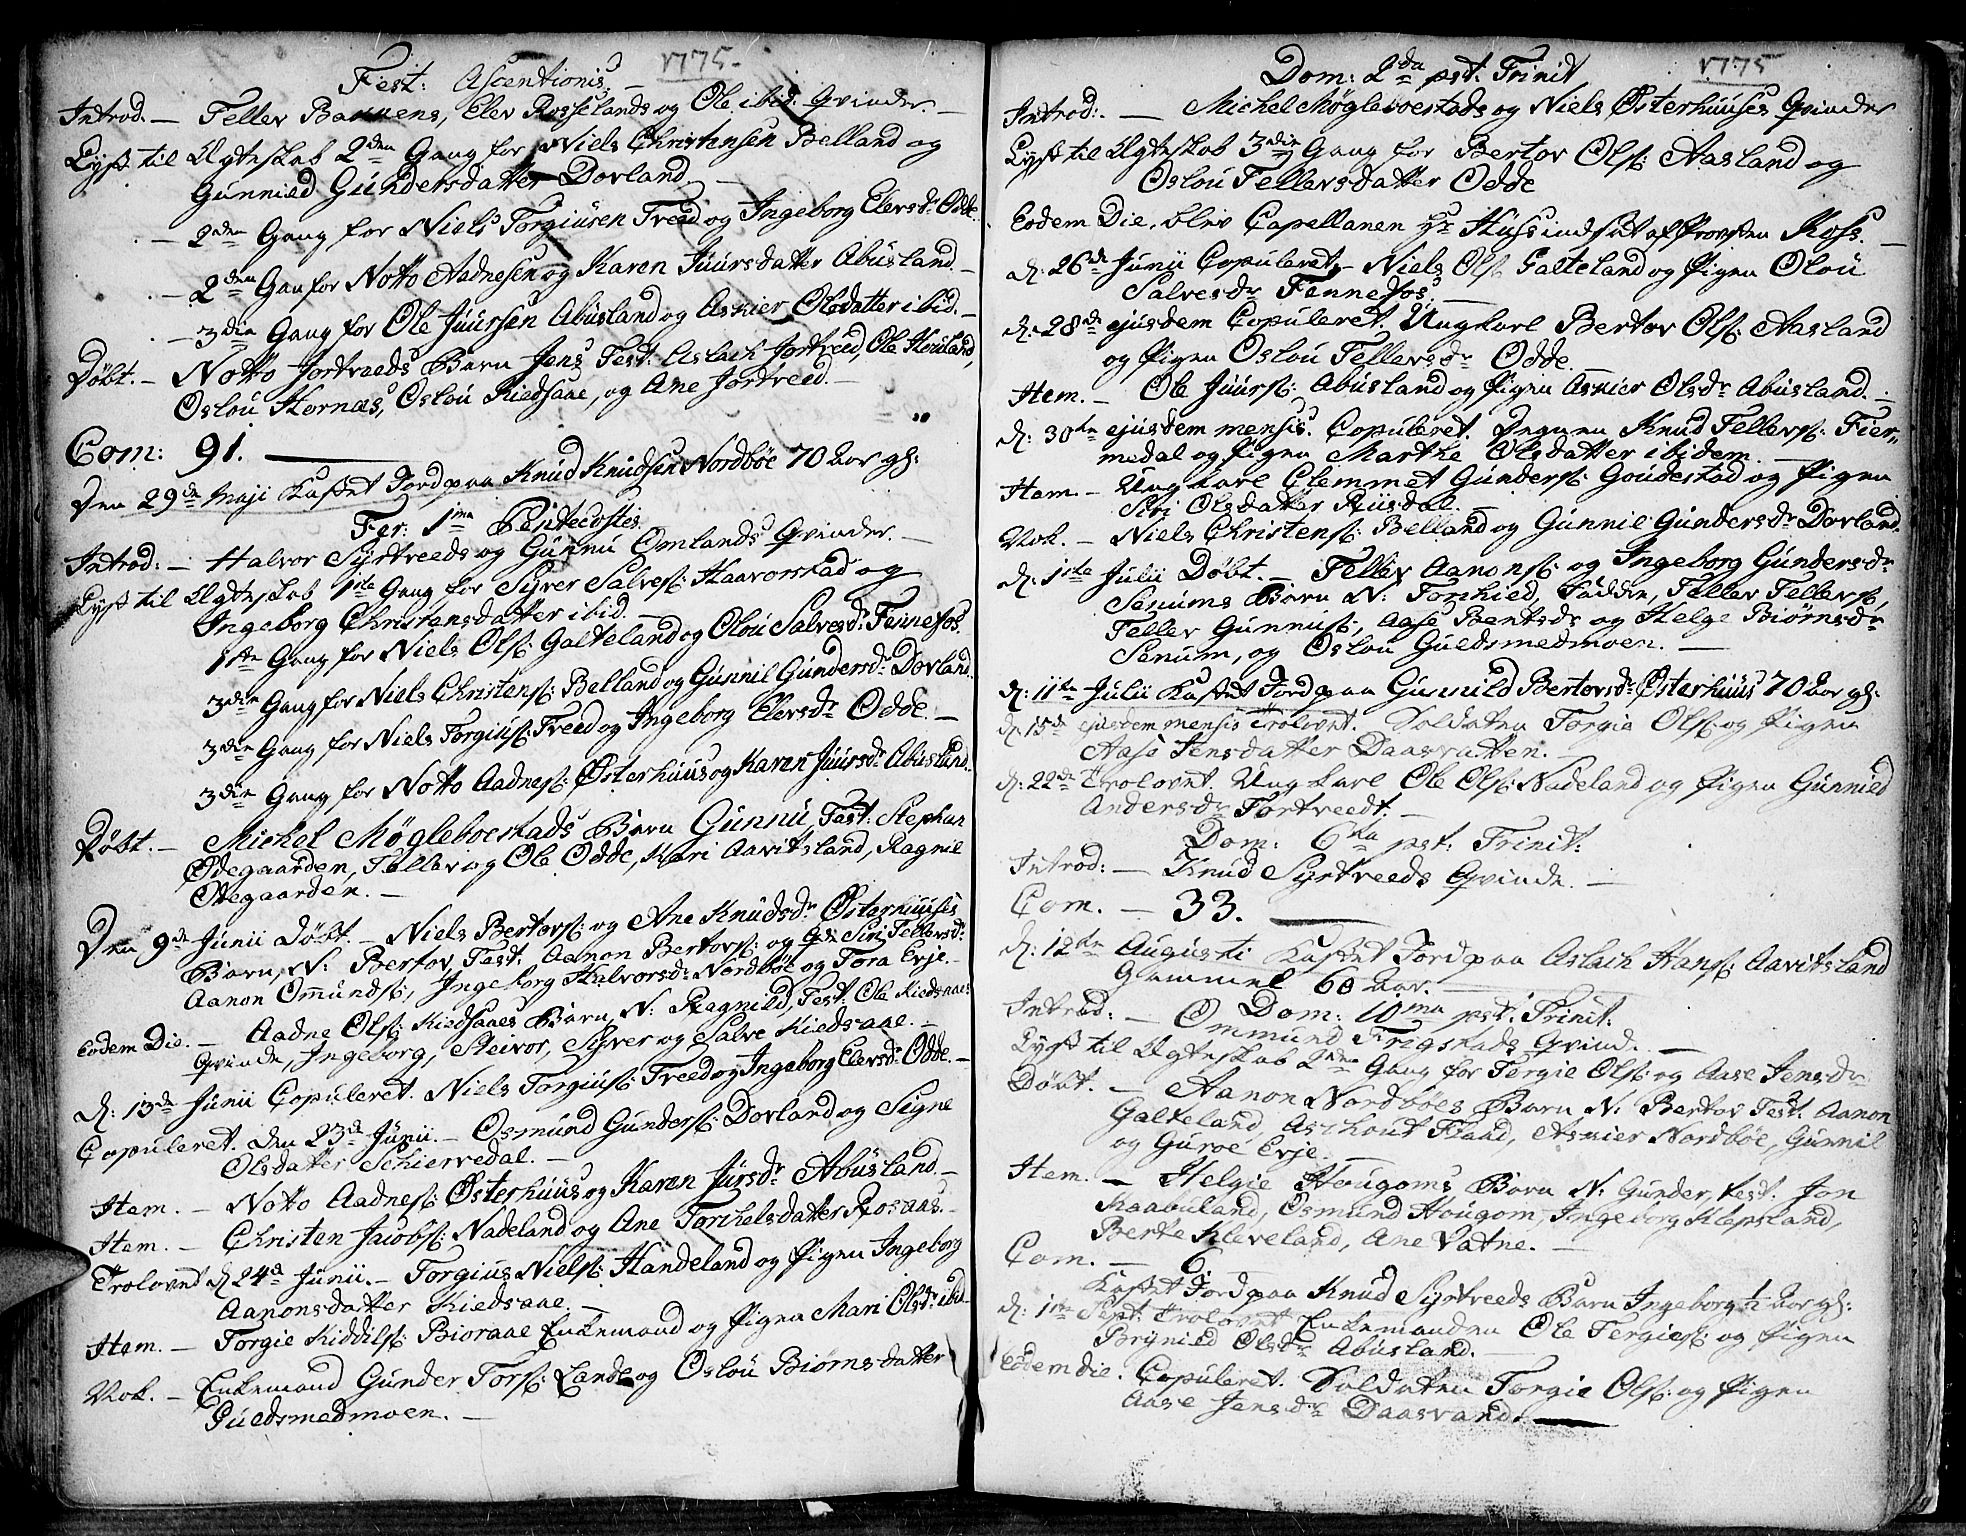 1775.
Fest: Ascentionis,
Introd. — Tellev Barnens, Elev Rosselands og Ole ibid: Qvinder. —
Lyst til Ægteskab 2den Gang for Niels Christensen Belland og
Gunnild Gundersdatter Dovland. —
— 2den Gang for Niels Torgiusen Treed og Ingeborg Elevsdr Odde.
— 2den Gan for Notto Aadnesen og Karen Juursdatter Abusland. —
— 3die Gang for Ole Juursen Abusland og Asnier Olsdatter ibid. —
Døbt. — Notto Jortveeds Barn Jens Test: Aslach Jortveed, Ole
Oslou Hornæs, Oslou Kiedsaae, og Ane Jortveed. —
Com: 91.
Den 29de Maji Kastet Jord paa Knud Knudsen Nordbøe 70 Aar gl:
Fer: 1ma Pentecostes.
Introd: — Halvor Syrtveeds og Gunnu Omlands Qvinder. —
Lyst til Ægteskab 1ste Gang for Syver Salvess: Haavorstad og
Ingeborg Christensdatter ibid. —
1ste Gang for Niels Olss: Galteland og Olou Salvesdr Fennefos.
3die Gang for Niels Christenss: Belland og Gunnil Gundersdr Dovland.
3die Gang for Niels Torgiuss: Treed og Ingeborg Elevsdr Odde. —
3die Gang for Notto Aadness: Østerhuus og Karen Juursdr Abusland.
Døbt. — Michel Møgleboestads Barn Gunnu Test: Stephan
Ødegaarden, Tellev og Ole Odde, Kari Aavitsland, Ragnil
Ødegaarden. —
Den 9de Junii Døbt. — Niels Bertovss: og Ane Knudsdr Østerhuuses
Barn, N: Bertov, Test: Aanon Bertovss: og Siri Tellevsdr
Aanon Omunds:, Ingeborg Halvorsdr Nordbøe og Tora Erje. —
Eodem Die. — Aadne Olss: Kiedsaaes Barn, N: Ragnild, Test: Ole Kiedsaaes
Qvinde, Ingeborg, Steivor, Syver og Salve Kiedsaae. —
d: 13de Junii Copuleret. Niels Torgiuss: Treed og Ingeborg Elevsdr Odde. —
Copuleret. den 23de Junii. — Osmund Gunderss: Dovland og Signe
Olsdatter Schiervedal. —
Item. — Notto Aadness: Østerhuus og Karen Jursdr Abusland. —
Item. — Christen Jacobss: Nadeland og Ane Torchelsdatter Rosaas. —
Trolovet d: 24de Junii. — Torgius Nielss: Handeland og Pigen Ingeborg
Aanonsdatter Kiedsaae. —
Item. — Torgie Kiddilss: Bioraae Enkemand og Pigen Mari Olsdr ibid
Nok. — Enkemand Gunder Torss: Lande og Oslou Biørnsdatter
Guldsmedmoen. —
1775
Dom: 2da pst: Trinit
Introd: — Michel Møgleboestads og Niels Østerhuuses Qvinder
Lyst til Ægteskab 3die Gang for Bertov Olss: Aasland og
Oslou Tellevsdatter Odde
Eodem Die, blev Capellanen Hr Huss indsat af Provsten Koss. —
d: 26de Junii Copuleret, Niels Olss: Galteland og Pigen Olou
Salvesdr Fennefos. —
d: 28de ejusdem Copuleret. Ungkarl Bertov Olss: Aasland
og Pigen Oslou Tellevsdr Odde.
Item. — Ole Juurss: Abusland og Pigen Asnier Olsdr Abusland. —
d: 30te ejusdem mensis. Copuleret. Degnen Knud Tellevss: Fier-
medal og Pigen Marthe Olsdatter ibidem. —
Item. — Ungkarl Clemmet Gunderss: Goudestad og Pigen
Siri Olsdatter Riisdal. —
Nok. — Niels Christenss: Belland og Gunnil Gundersdr Dovland.
d: 1ste Julii Døbt. — Tellev Aanonss: og Ingeborg Gundersdr
Senums Barn N: Torchild, Faddere, Tellev Tellevss,
Tellev Gunnuss:, Aase Bentsdr og Helge Biørnsdr
Senum, og Oslou Guldsmedmoen. —
d: 11te Julii Kastet Jord paa Gunnild Bertovsdr Østerhuus 70 Aar gl:
d: 15de ejusdem mensis Trolovet. Soldaten Torgie Olss: og Pigen
Aase Jensdatter Daasvatten. —
d: 22de Trolovet. Ungkarl Ole Olss: Nadeland og Pigen Gunnild
Andersdr Tortveedt. —
Dom: 6ta pst: Trinit:
Introd: — Knud Syrtveeds Qvinde. —
Com. — 33.
d: 12te Augusti Kastet Jord paa Aslach Hanss: Aavitsland
Gammel 60 Aar. —
Dom: 10ma pst: Trinit:
Introd: — Ommund Fregstads Qvind. —
Lyst til Ægteskab 2den Gang for Torgie Olss: og Aase Jensdr
Døbt. — Aanon Nordbøes Barn N: Bertov Test: Aanon
Galteland, Aschout Flaad, Asnier Nordbøe, Gunnil
og Guroe Erje. —
Item. — Helgie Hougoms Barn N: Gunder, test: Jon
Raabuland, Osmund Hougom, Ingeborg Klepsland,
Berte Kleveland, Ane Vatne. —
Com. — 6.
Kastet Jord paa Knud Syrtveeds Barn Ingeborg ½ Aar gl:
d: 1ste Sept: Trolovet Enkemanden Ole Tergiess: og Pigen
Brynild Olsdr Abusland. —
Eodem die. Copuleret. Soldaten Torgie Olss: og Pigen
Aase Jensdr Daasvand. —